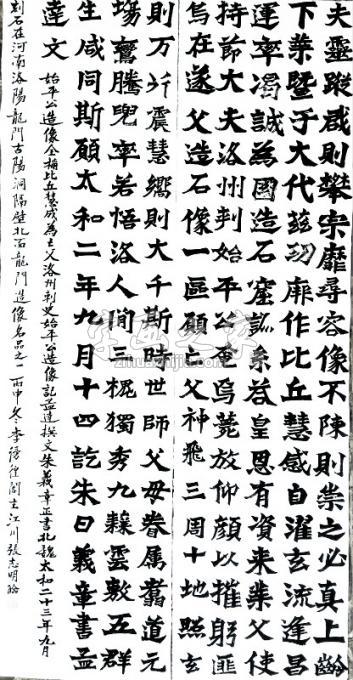 夫靈蹤啟則攀宗靡尋容像不陳則崇之必真上齡
下葉暨于大代兹功厥作比丘慧感自濯玄流逢昌
運率渴誠為國造石窟系荅皇恩有資来業父使
持節大夫洛州判始平公奄焉薨放仰顏以摧躬匪
烏在遂父造石像一區願亡父神飛三周十地照玄
則万斤震慧嚮則大千斯時世師父母眷属翥道元
塲鸞騰兜率若悟洛人間三槐獨秀九蕀雲敷五群
生咸同斯願太和二年九月十四訖朱曰義章書孟
達文
始平公造像全稱比丘慧成為亡父洛州刺史始平公造像記孟達撰文朱義章正書北魏太和二十三年九月
刻石在河南洛陽龍門古陽洞隔壁北龍門造像名品之一丙申冬李江川張志明